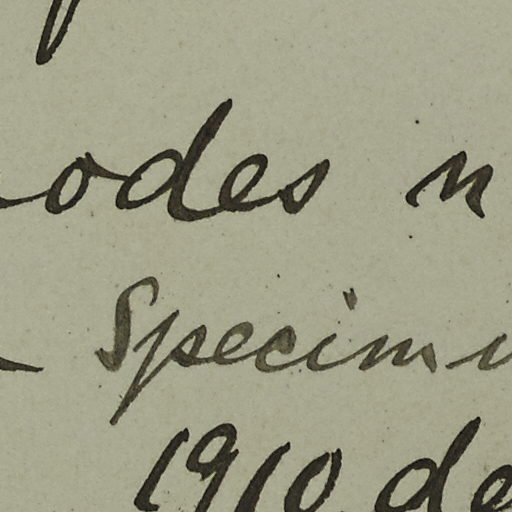 odes n
Specim
1910 de